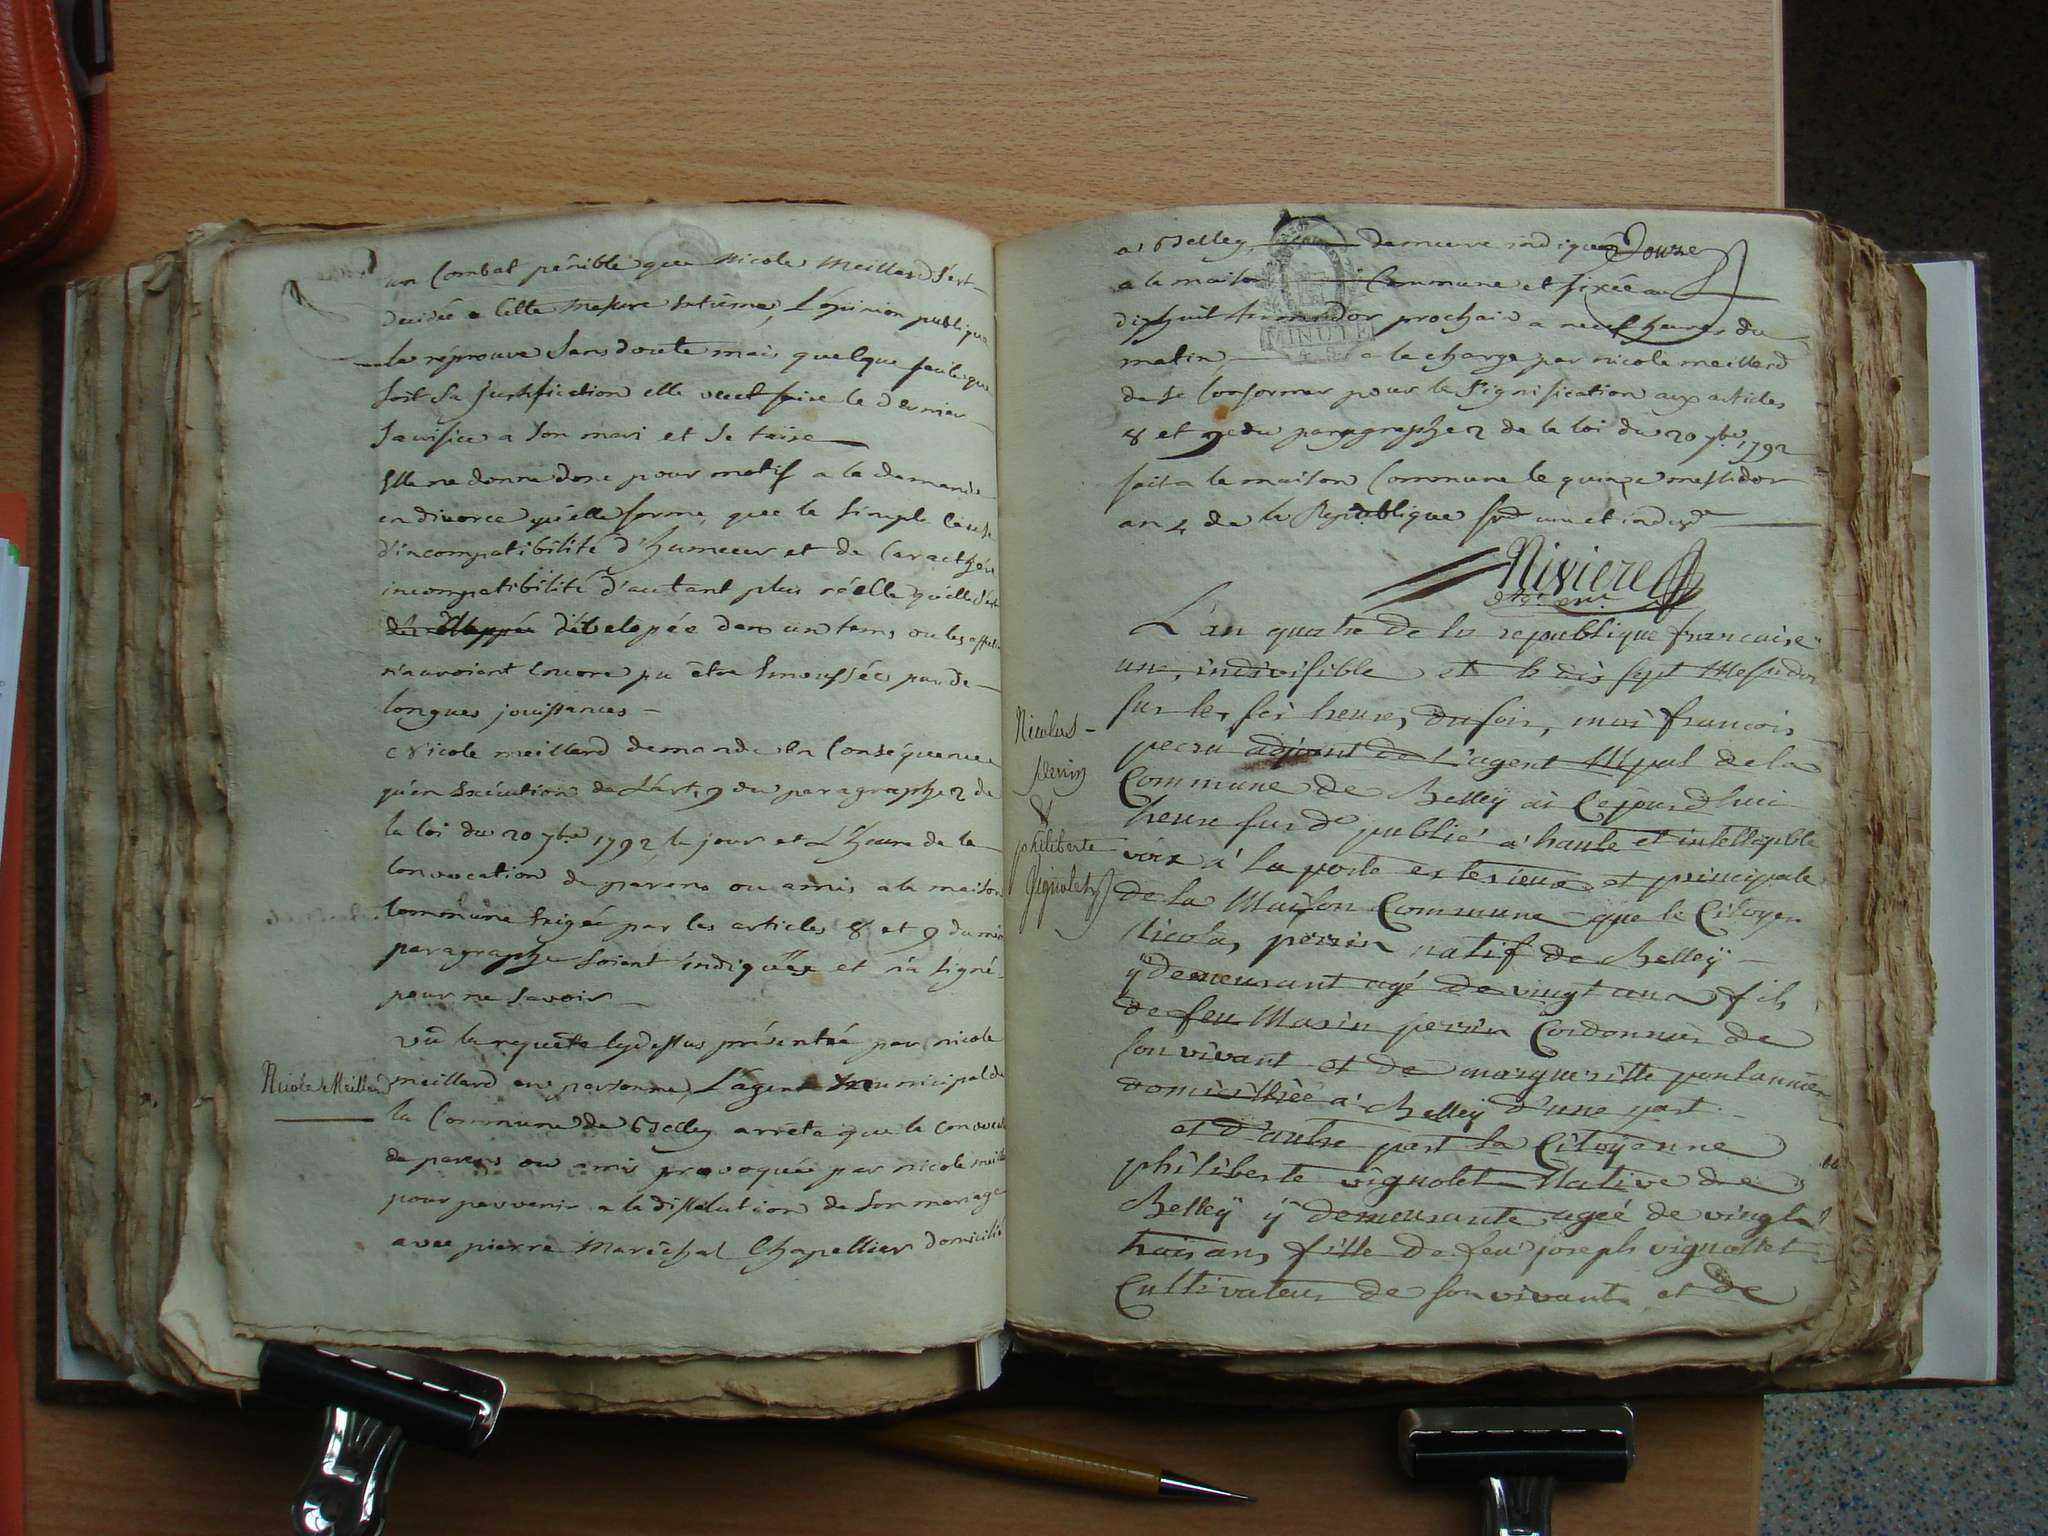 un Combat pénible que Nicole Meillard s'est
decidée a Cette Mesure Extrême, L'opinion publique
la réprouve sans doute mais quelque facile que
soit sa justification elle veut faire le dernier
sacrifice a son mari et se taire
Elle ne donne donc pour motif a la demande
en divorce qu'elle forme, que la simple Cause
d'incompatibilité d'humeur et de Caracthère
incompatibilité d'autant plus réelle qu'elle s'est
dévelopée dans un tems ou les effets
n'avoient Encore pu être Emoussées par de
longues jouissances
Nicole meillard demande En Conséquence
qu'en Exécution de L'art. 9 du paragraphe 2 de
la loi du 20 7bre 1792, le jour et L'heure de la
Convocation de parens ou amis a la maison
Commune Exigée par les articles 8 et 9 du même
paragraphe soient indiquées et n'a signé
pour ne savoir
Vu la requête cydessus présentée par nicole
Nicole Meillard
meillard en personne, L'agent municipal de
la Commune de Belley arrête que la Convocation
de parens ou amis provoquée par nicole meillard
pour parvenir a la dissolution de son mariage
avec pierre Maréchal Chapellier domicilié
a Belley, demeure indiquée
a la maison Commune et fixée au
dixhuit thermidor prochain a neuf heures du
MINUTE
matin, a la charge par nicole meillard
de se Conformer pour la signification aux articles
8 et 9 du paragraphe 2 de la loi du 20 7bre 1792
fait a la maison Commune le quinze messidor
an 4 de la République une et
Rivière
L'an quatre de la republique francaise
une, indivisible et le dix sept Messidor
sur les six heures du soir, moi francois
adjoint de L'agent Mpal de la
Commune de Belleÿ ai Cejourdhui
heure susde publié a haute et intelligible
voix a la porte exterieure et principale
de la Maison Commune que le Citoyen
Nicolas perrin natif de Belleÿ
ÿ demeurant agé de vingt ans, fils
de feu Marin perrin Cordonnier de
son vivant et de margueritte
domiciliée a Belleÿ d'une part
et d'autre part la Citoÿenne
philiberte vignolet Native de
Belleÿ ÿ demeurante ageé de vingt
trois ans, fille de feu joseph vignollet
Cultivateur de son vivant et de
Nicolas
perrin
&
philiberte
Vignolet